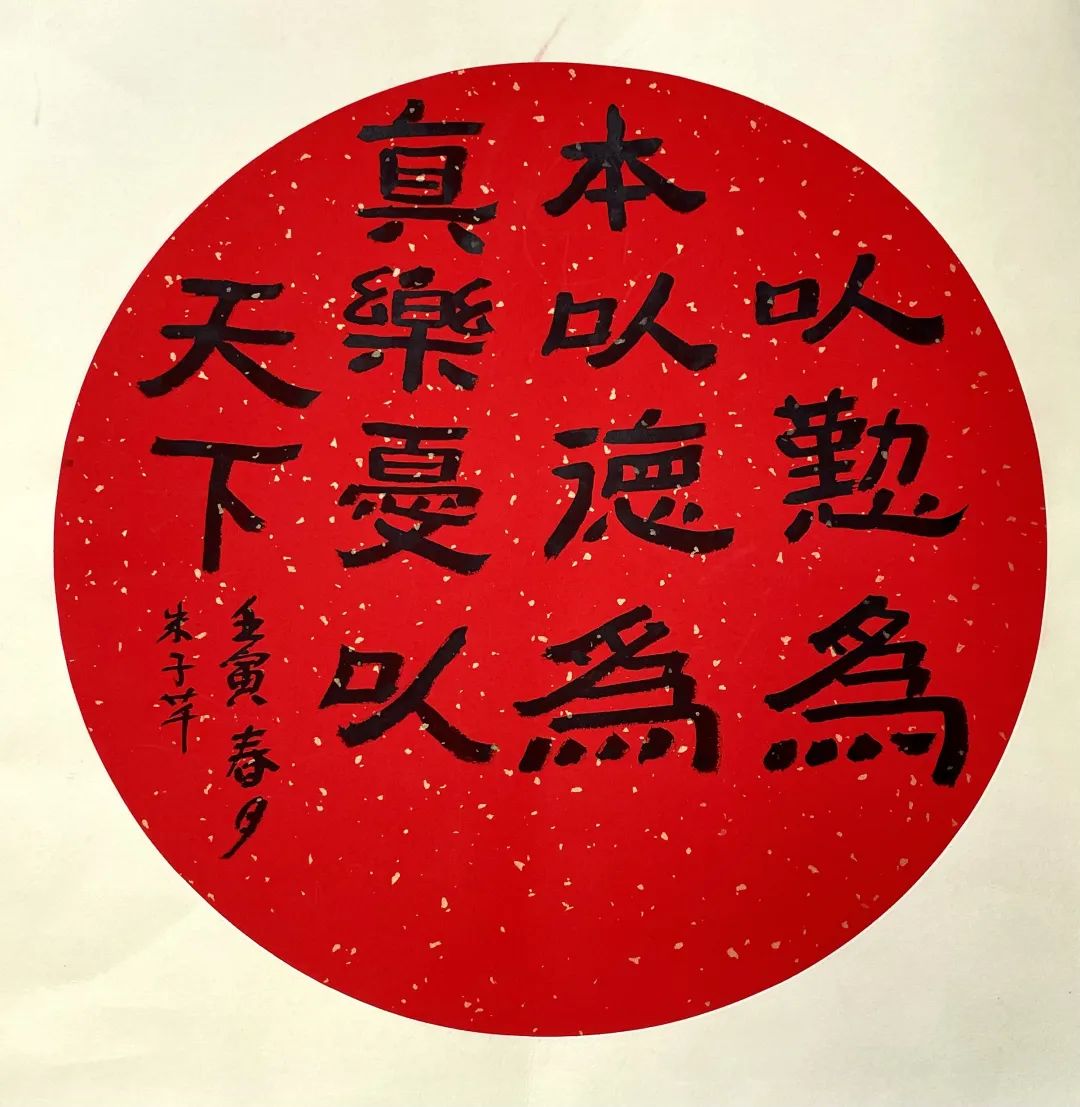 以懃為
本以德為
真樂憂以
天下
壬寅春月
朱子芊